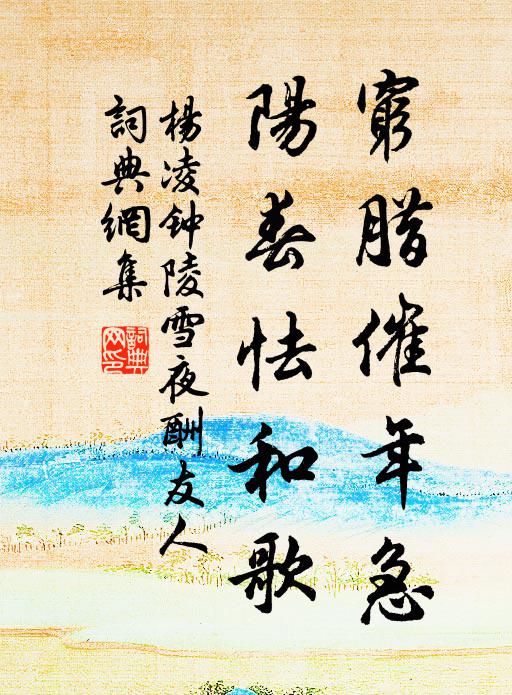 窮腊催年急
陽春怯和歌
楊凌钟陵雪夜酬友人
詞典網集